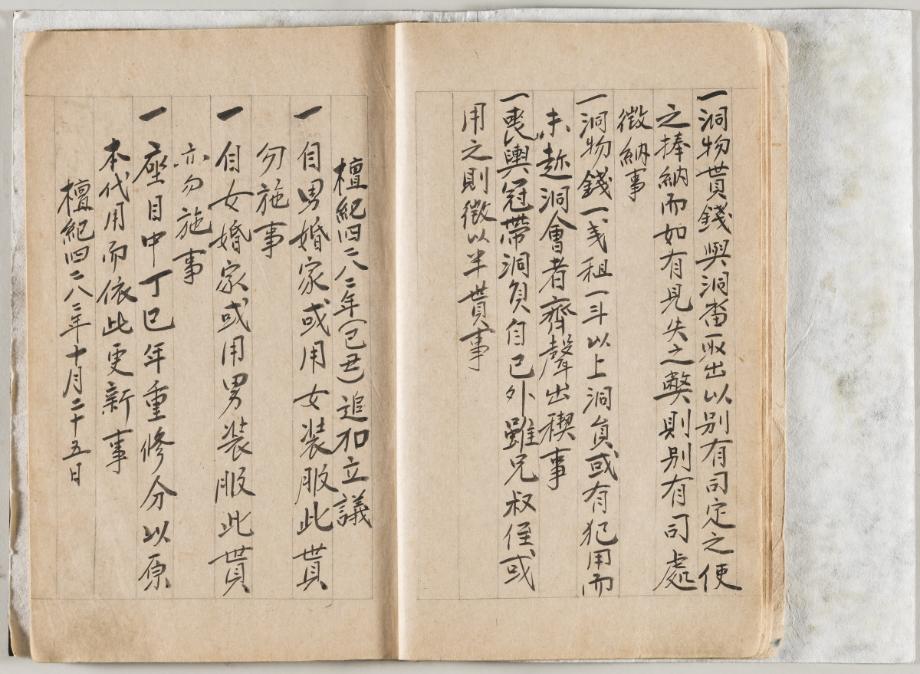 一洞物貰錢與洞畓取出以別有司定之使
之捧納而如有見失之獘則別有司處
徵納事
一洞物錢一戔租一斗以上洞員或有犯用而
未趂洞會者齊聲出稧事
一喪輿冠帶洞員自己外雖兄叔侄或
用之則徵以半貰事
檀紀四二八二年(己丑)追加立議
一自男婚家或用女装服此貰
勿施事
一自女婚家或用男装服此貰
亦勿施事
一座目中丁巳年重修分以原
本代用而依此更新事
檀紀四二八二年十月二十五日